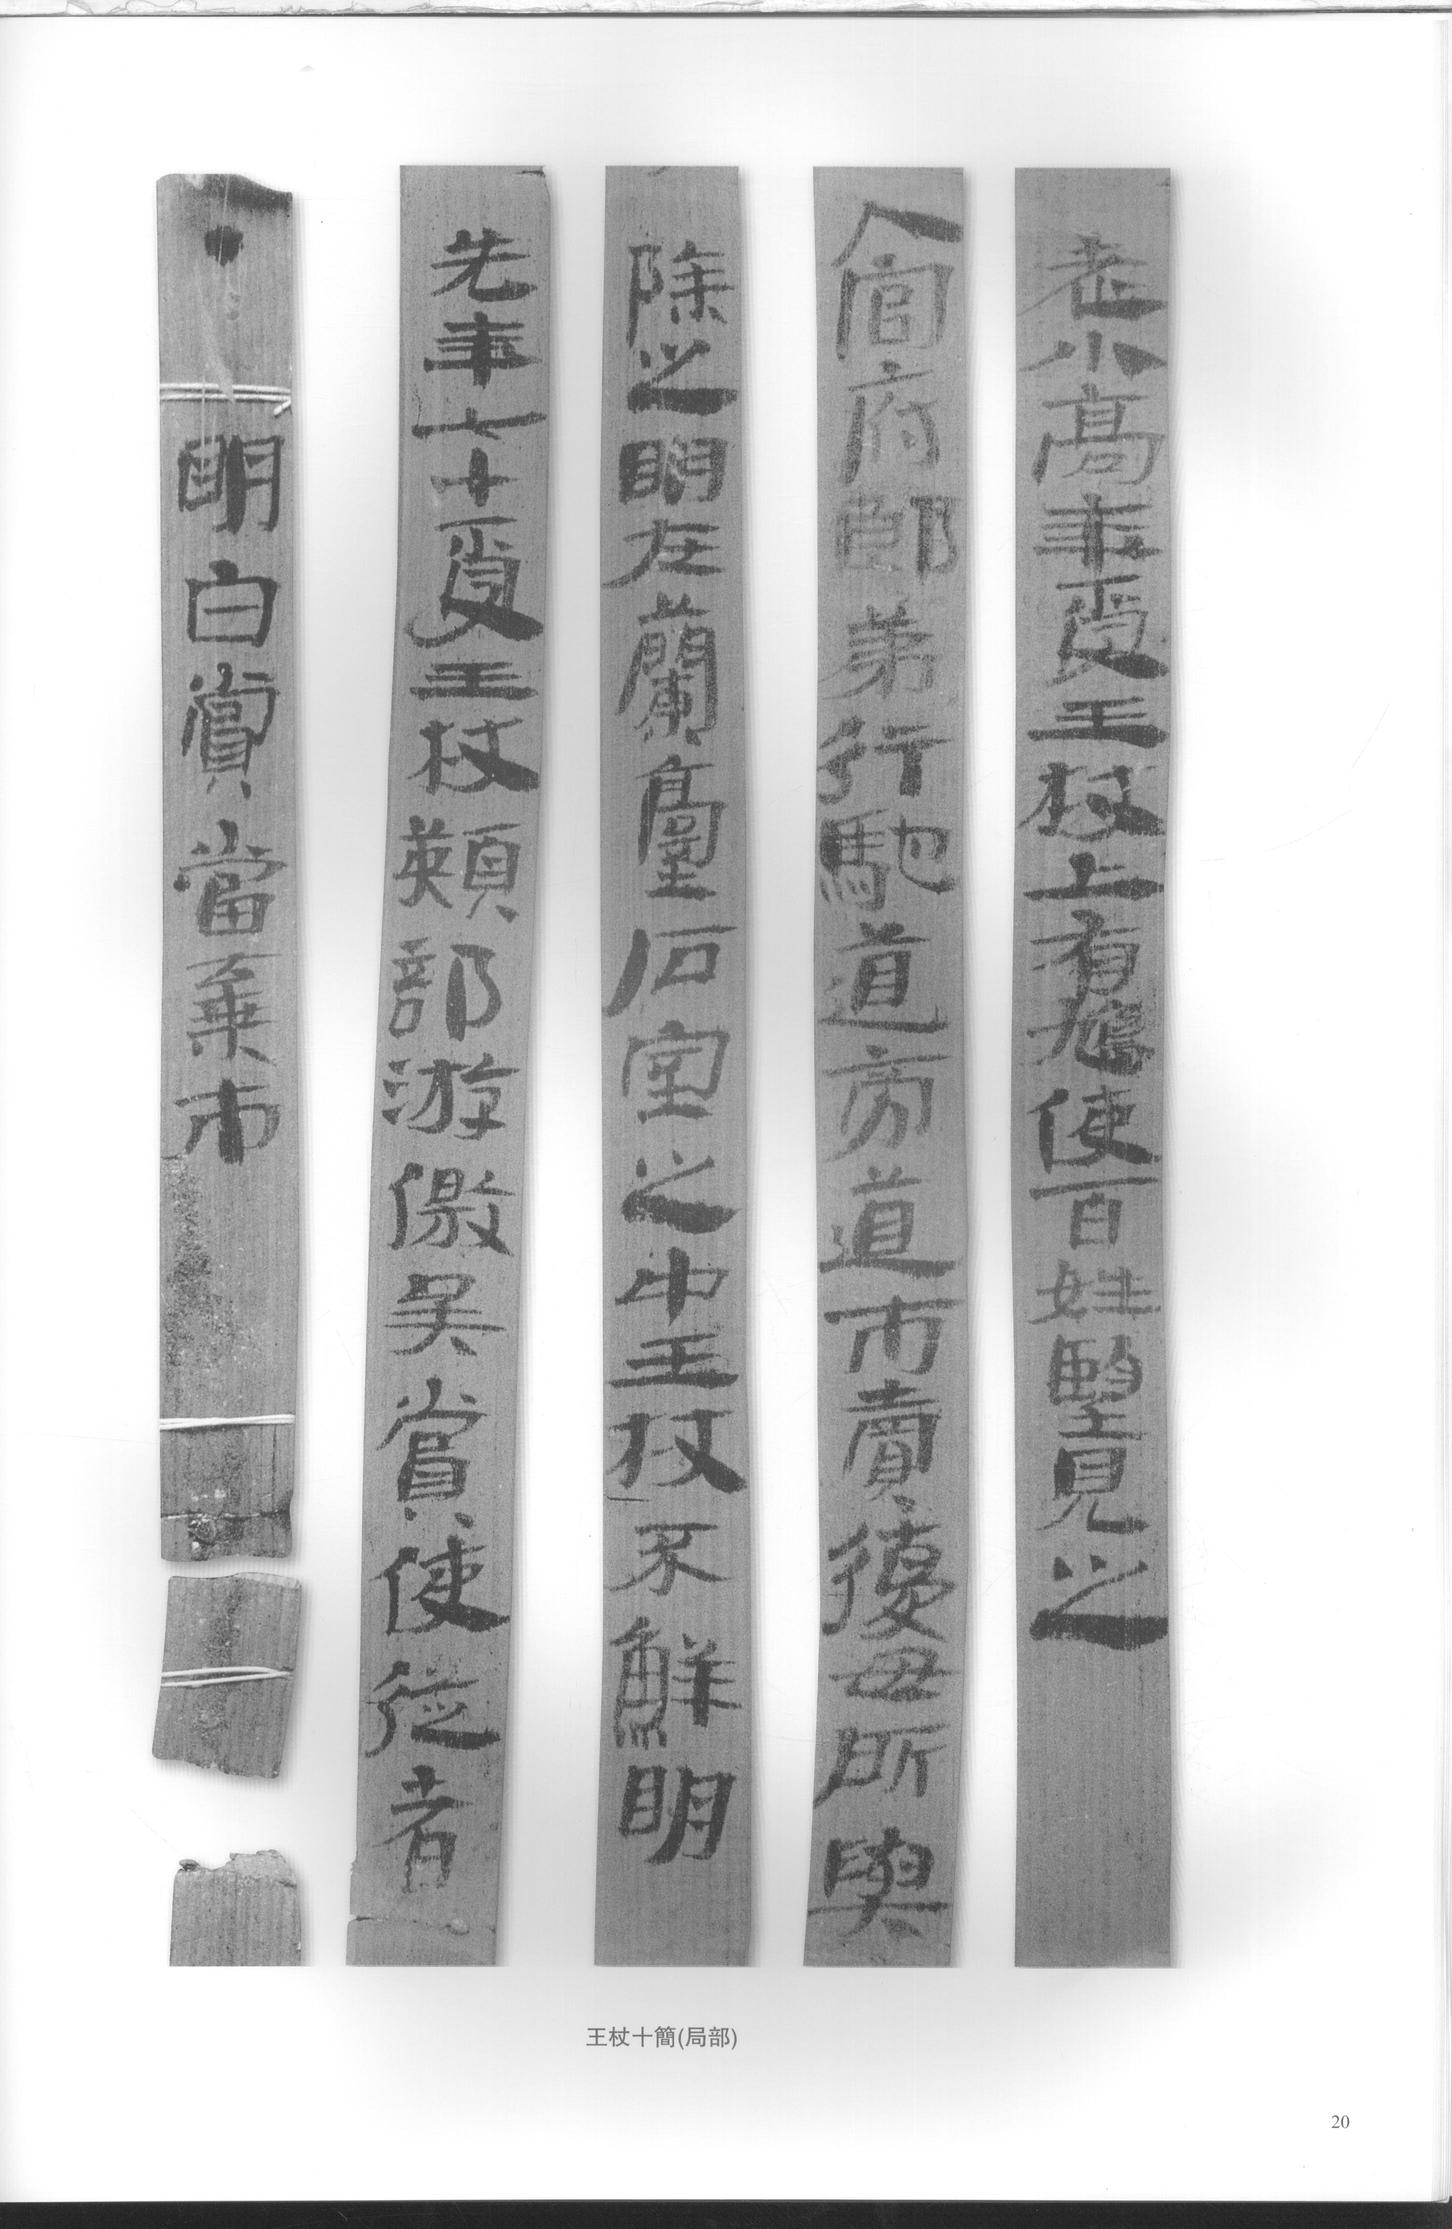 老小高年受王杖上有鳩使百姓望見之
入官府郎弟行馳道旁道市賣復毋所與
除之明在蘭臺石室之中王杖不鮮明
先年七十受王杖部游徼吴賞使從者
明白賞當棄市
王杖十簡(局部)
20